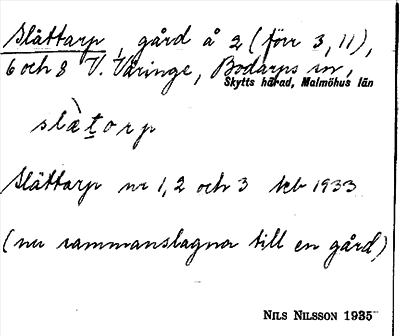 Slättarp, gård å 2 (förr 3, 11),
6 och 8 V. Väringe, Bodarps sn,
Skytts härad, Malmöhus län
slæ̀t̲orp
Slättarp nr 1, 2 och 3 tkb 1933
(nu sammanslagna till en gård)
NILS NILSSON 1935